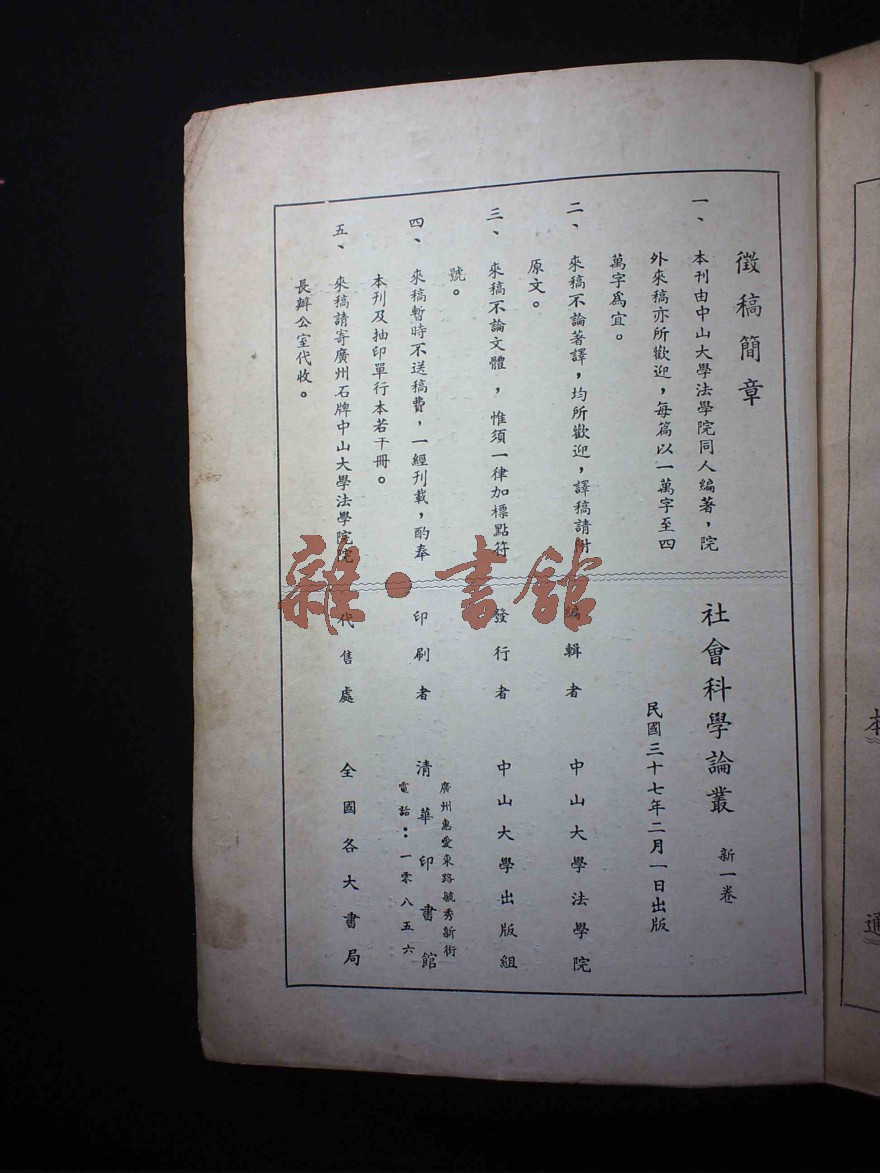 徵稿簡章
一、本刊由中山大學法學院同人編著，院
外來稿亦所歡迎，每篇以一萬字至四
萬字爲宜。
二、來稿不論著譯，均所歡迎，譯稿請附
原文。
三、來稿不論文體，惟須一律加標點符
號。
四、來稿暫時不送稿費，一經刊載，酌奉
本刊及抽印單行本若干冊。
五、來稿請寄廣州石牌中山大學法學院院
長辦公室代收。
社會科學論叢 新一卷
民國三十七年二月一日出版
編輯者 中山大學法學院
發行者 中山大學出版組
印刷者 清華印書館
廣州惠愛東路毓秀新街
電話：一零八五六
代售處 全國各大書局
雜·書館
本
通